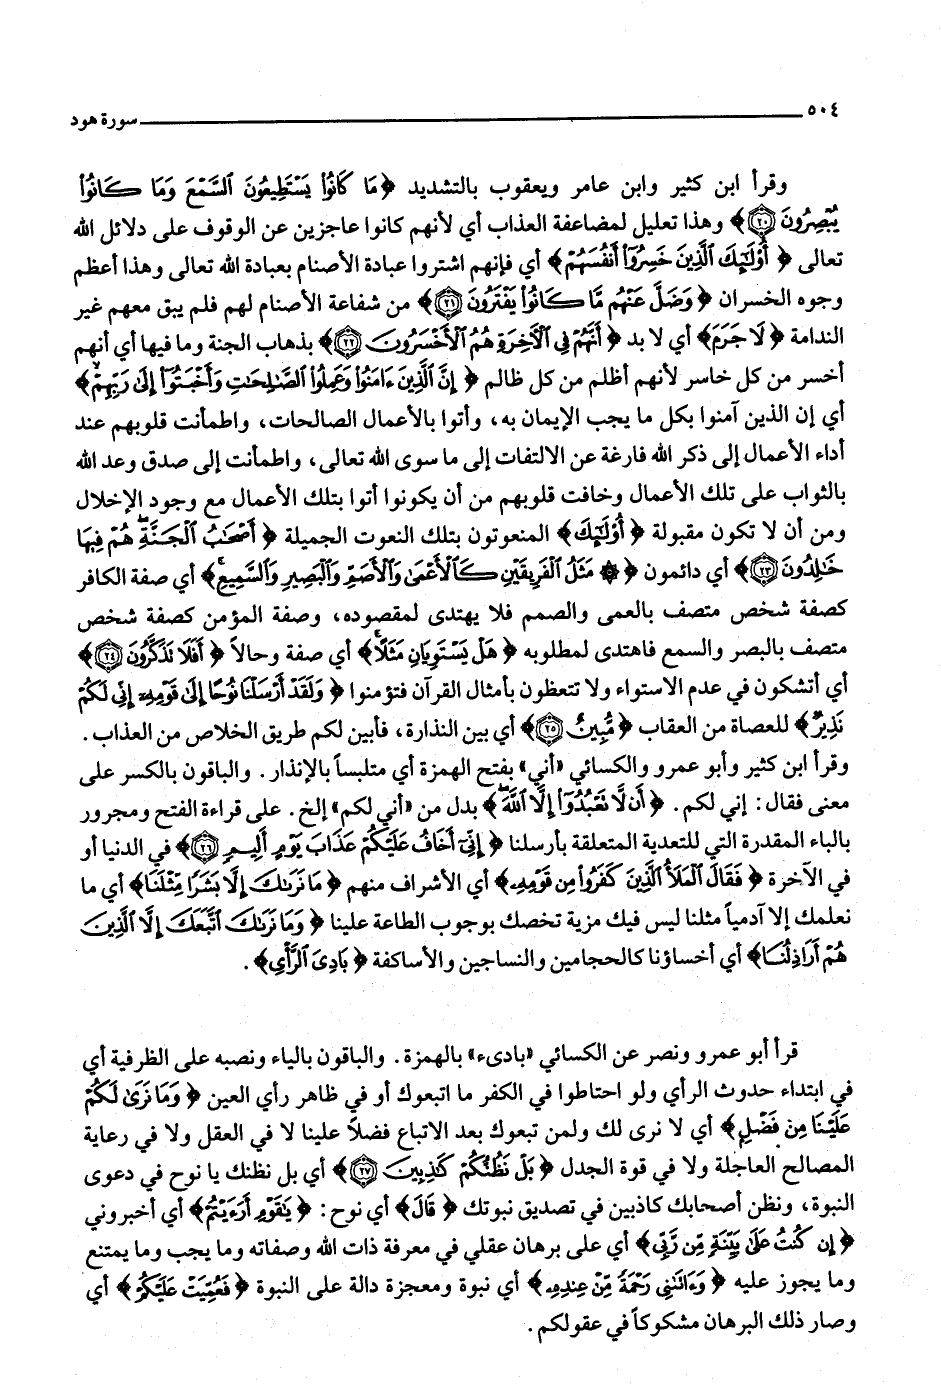 ٥٠٤ سورة هود
وقرأ ابن كثير وابن عامر ويعقوب بالتشديد ﴿مَا كَانُوا۟ يَسْتَطِيعُونَ ٱلسَّمْعَ وَمَا كَانُوا۟
يُبْصِرُونَ ٢٠﴾ وهذا تعليل لمضاعفة العذاب أي لأنهم كانوا عاجزين عن الوقوف على دلائل الله
تعالى ﴿أُو۟لَٰٓئِكَ ٱلَّذِينَ خَسِرُوٓا۟ أَنفُسَهُمْ﴾ أي فإنهم اشتروا عبادة الأصنام بعبادة الله تعالى وهذا أعظم
وجوه الخسران ﴿وَضَلَّ عَنْهُم مَّا كَانُوا۟ يَفْتَرُونَ ٢١﴾ من شفاعة الأصنام لهم فلم يبق معهم غير
الندامة ﴿لَا جَرَمَ﴾ أي لا بد ﴿أَنَّهُمْ فِى ٱلْءَاخِرَةِ هُمُ ٱلْأَخْسَرُونَ ٢٢﴾ بذهاب الجنة وما فيها أي أنهم
أخسر من كل خاسر لأنهم أظلم من كل ظالم ﴿إِنَّ ٱلَّذِينَ ءَامَنُوا۟ وَعَمِلُوا۟ ٱلصَّٰلِحَٰتِ وَأَخْبَتُوٓا۟ إِلَىٰ رَبِّهِمْ﴾
أي إن الذين آمنوا بكل ما يجب الإيمان به، وأتوا بالأعمال الصالحات، واطمأنت قلوبهم عند
أداء الأعمال إلى ذكر الله فارغة عن الالتفات إلى ما سوى الله تعالى، واطمأنت إلى صدق وعد الله
بالثواب على تلك الأعمال وخافت قلوبهم من أن يكونوا أتوا بتلك الأعمال مع وجود الإخلال
ومن أن لا تكون مقبولة ﴿أُو۟لَٰٓئِكَ﴾ المنعوتون بتلك النعوت الجميلة ﴿أَصْحَٰبُ ٱلْجَنَّةِ ۖ هُمْ فِيهَا
خَٰلِدُونَ ٢٣﴾ أي دائمون ﴿۞ مَثَلُ ٱلْفَرِيقَيْنِ كَٱلْأَعْمَىٰ وَٱلْأَصَمِّ وَٱلْبَصِيرِ وَٱلسَّمِيعِ ۚ﴾ أي صفة الكافر
كصفة شخص متصف بالعمى والصمم فلا يهتدى لمقصوده، وصفة المؤمن كصفة شخص
متصف بالبصر والسمع فاهتدى لمطلوبه ﴿هَلْ يَسْتَوِيَانِ مَثَلًا ۚ﴾ أي صفة وحالاً ﴿أَفَلَا تَذَكَّرُونَ ٢٤﴾
أي أتشكون في عدم الاستواء ولا تتعظون بأمثال القرآن فتؤمنوا ﴿وَلَقَدْ أَرْسَلْنَا نُوحًا إِلَىٰ قَوْمِهِۦ إِنِّى لَكُمْ
نَذِيرٌ﴾ للعصاة من العقاب ﴿مُّبِينٌ ٢٥﴾ أي بين النذارة، فأبين لكم طريق الخلاص من العذاب.
وقرأ ابن كثير وأبو عمرو والكسائي «أني» بفتح الهمزة أي متلبساً بالإنذار. والباقون بالكسر على
معنى فقال: إني لكم. ﴿أَن لَّا تَعْبُدُوٓا۟ إِلَّا ٱللَّهَ ۖ﴾ بدل من «أني لكم» إلخ. على قراءة الفتح ومجرور
بالباء المقدرة التي للتعدية المتعلقة بأرسلنا ﴿إِنِّىٓ أَخَافُ عَلَيْكُمْ عَذَابَ يَوْمٍ أَلِيمٍ ٢٦﴾ في الدنيا أو
في الآخرة ﴿فَقَالَ ٱلْمَلَأُ ٱلَّذِينَ كَفَرُوا۟ مِن قَوْمِهِۦ﴾ أي الأشراف منهم ﴿مَا نَرَىٰكَ إِلَّا بَشَرًا مِّثْلَنَا﴾ أي ما
نعلمك إلا آدمياً مثلنا ليس فيك مزية تخصك بوجوب الطاعة علينا ﴿وَمَا نَرَىٰكَ ٱتَّبَعَكَ إِلَّا ٱلَّذِينَ
هُمْ أَرَاذِلُنَا﴾ أي أخساؤنا كالحجامين والنساجين والأساكفة ﴿بَادِىَ ٱلرَّأْىِ﴾.
قرأ أبو عمرو ونصر عن الكسائي «بادىء» بالهمزة. والباقون بالياء ونصبه على الظرفية أي
في ابتداء حدوث الرأي ولو احتاطوا في الكفر ما اتبعوك أو في ظاهر رأي العين ﴿وَمَا نَرَىٰ لَكُمْ
عَلَيْنَا مِن فَضْلٍ﴾ أي لا نرى لك ولمن تبعوك بعد الاتباع فضلاً علينا لا في العقل ولا في رعاية
المصالح العاجلة ولا في قوة الجدل ﴿بَلْ نَظُنُّكُمْ كَٰذِبِينَ ٢٧﴾ أي بل نظنك يا نوح في دعوى
النبوة، ونظن أصحابك كاذبين في تصديق نبوتك ﴿قَالَ﴾ أي نوح: ﴿يَٰقَوْمِ أَرَءَيْتُمْ﴾ أي أخبروني
﴿إِن كُنتُ عَلَىٰ بَيِّنَةٍ مِّن رَّبِّى﴾ أي على برهان عقلي في معرفة ذات الله وصفاته وما يجب وما يمتنع
وما يجوز عليه ﴿وَءَاتَىٰنِى رَحْمَةً مِّنْ عِندِهِۦ﴾ أي نبوة ومعجزة دالة على النبوة ﴿فَعُمِّيَتْ عَلَيْكُمْ﴾ أي
وصار ذلك البرهان مشكوكاً في عقولكم.